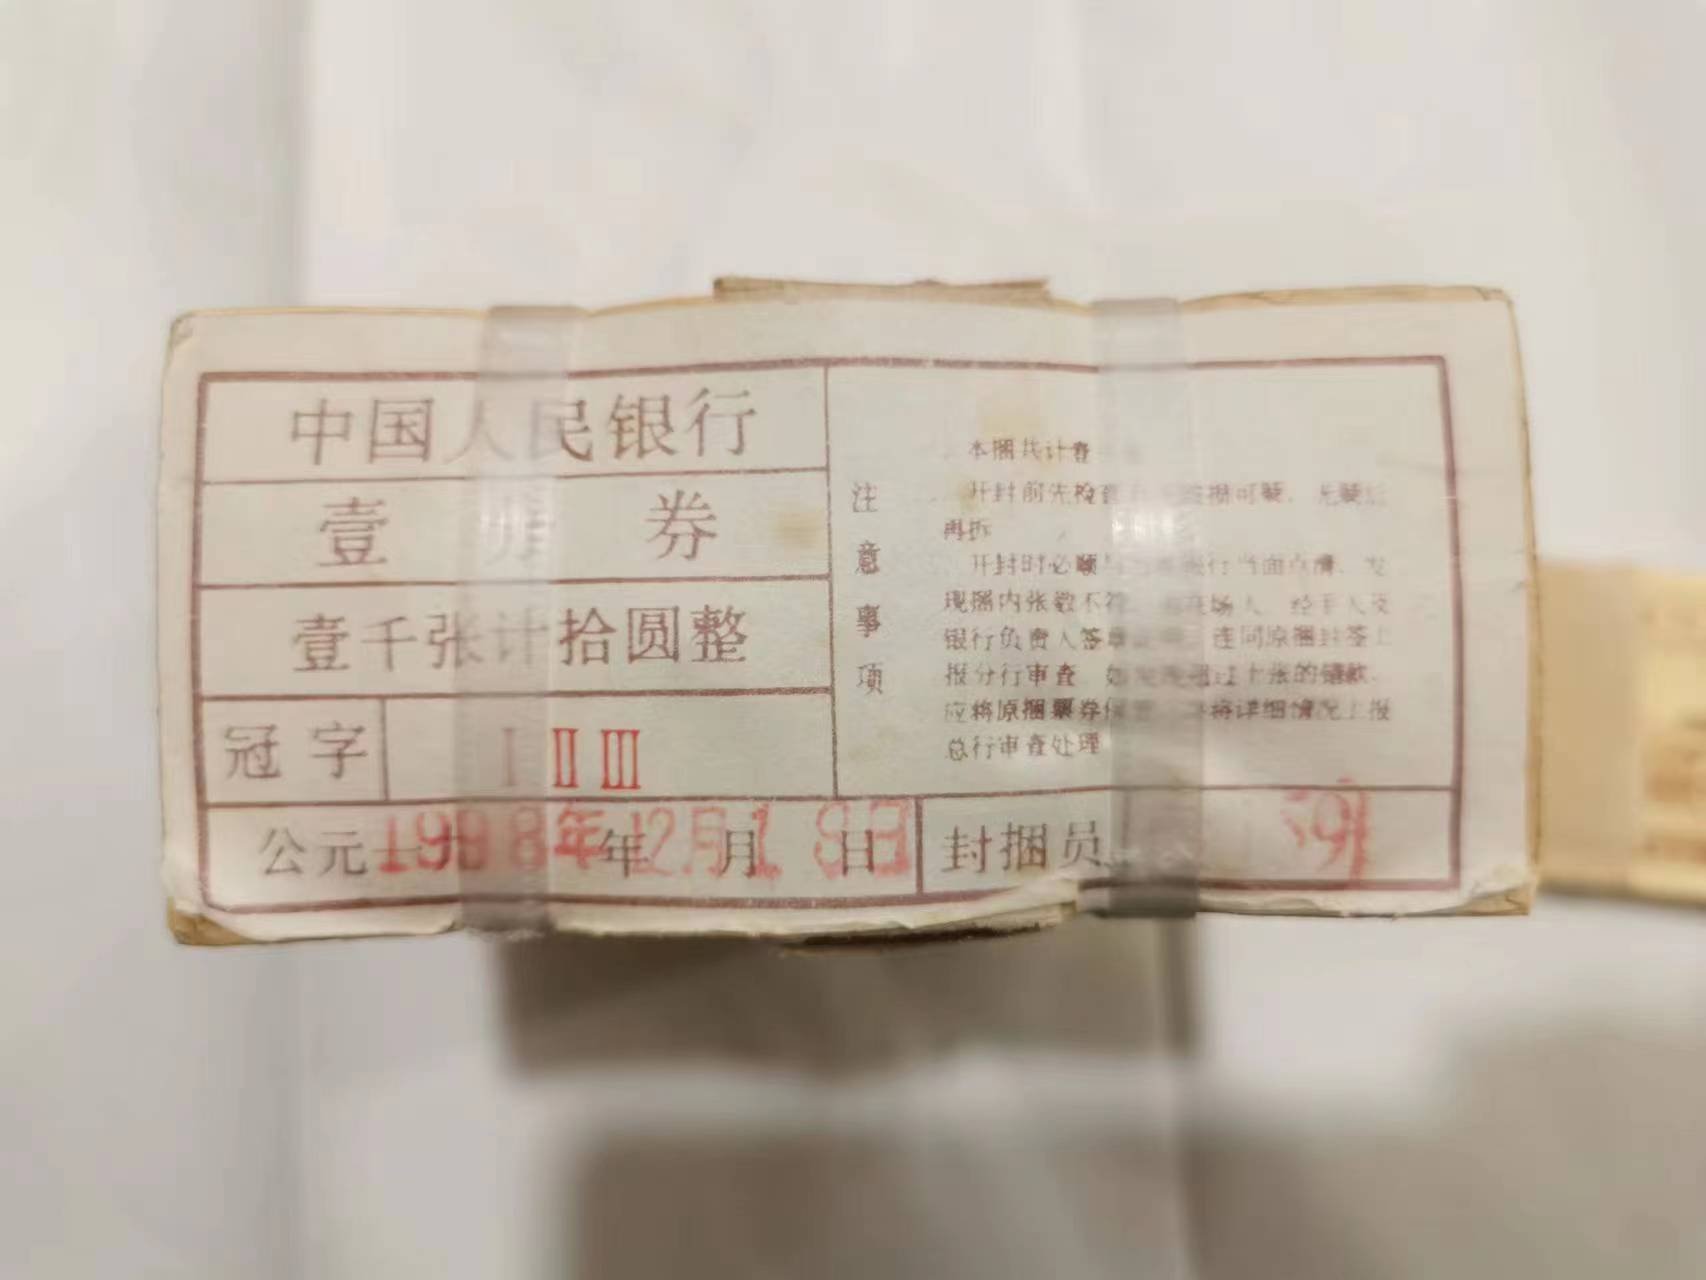 中国人民银行
壹 分 券
壹千张计拾圆整
冠字 I II III
公元一九 年 月 日
1998年12月18日
封捆员
注意事项
本捆共计壹
开封前先检查 可疑，无疑后
再拆
开封时必顺与 银行当面点清，发
现捆内张数不符， 在场人、经手人及
银行负责人签章 连同原捆封签上
报分行审查 如发现超过十张的错款，
应将原捆票券保 将详细情况上报
总行审查处理